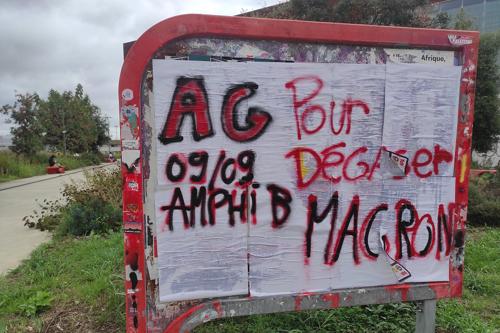 Afrique,
AG Pour
09/09 DÉGAGER
AMPHI B MACRON